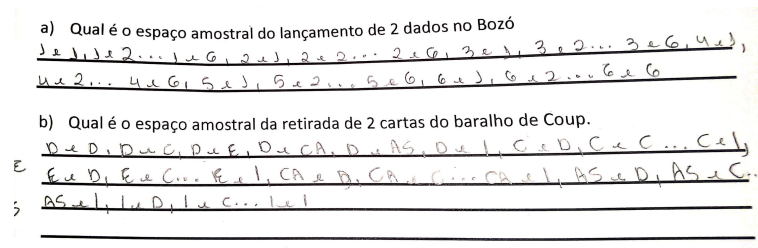 a) Qual é o espaço amostral do lançamento de 2 dados no Bozó
1 e 1, 1 e 2... 1 e 6, 2 e 1, 2 e 2... 2 e 6, 3 e 1, 3 e 2... 3 e 6, 4 e 1,
4 e 2... 4 e 6, 5 e 1, 5 e 2... 5 e 6, 6 e 1, 6 e 2... 6 e 6
b) Qual é o espaço amostral da retirada de 2 cartas do baralho de Coup.
D e D, D e C, D e E, D e CA, D e AS, D e I, C e D, C e C... C e I,
E e D, E e C... E e I, CA e D, CA e C... CA e I, AS e D, AS e C..
AS e I, I e D, I e C... I e I